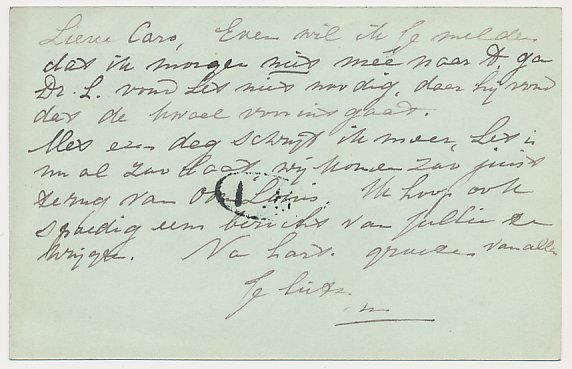 Lieve Caro, Even wil ik je melden
dat ik morgen niet mee naar A. ga
Dr. L. vond het niet noodig, daar hij vond
dat de kwaal vooruit gaat.
Met een dag schrijf ik meer, het is
nu al zoo laat, wij komen zoo juist
terug van Louis. Ik hoop ook
spoedig eens bericht van jullie te
krijgen. Na hart. groeten van allen
Je
1